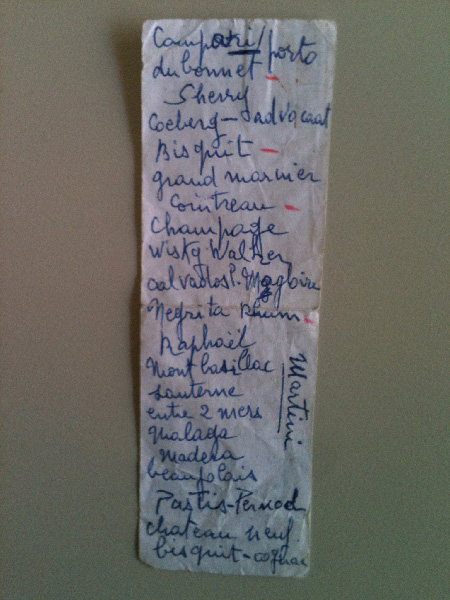 Campari/porto
dubonnet -
Sherry
Coeberg - advocaat
Bisquit -
grand marnier
Cointreau -
Champage
Wisky Walker
calvados P. Magloire
Negrita Rhum -
Raphaël
Mont basillac
Martini
Sauterne
entre 2 mers
malaga
madera
beaujolais
Pastis-Pernod
chateau neuf
bisquit-cognac